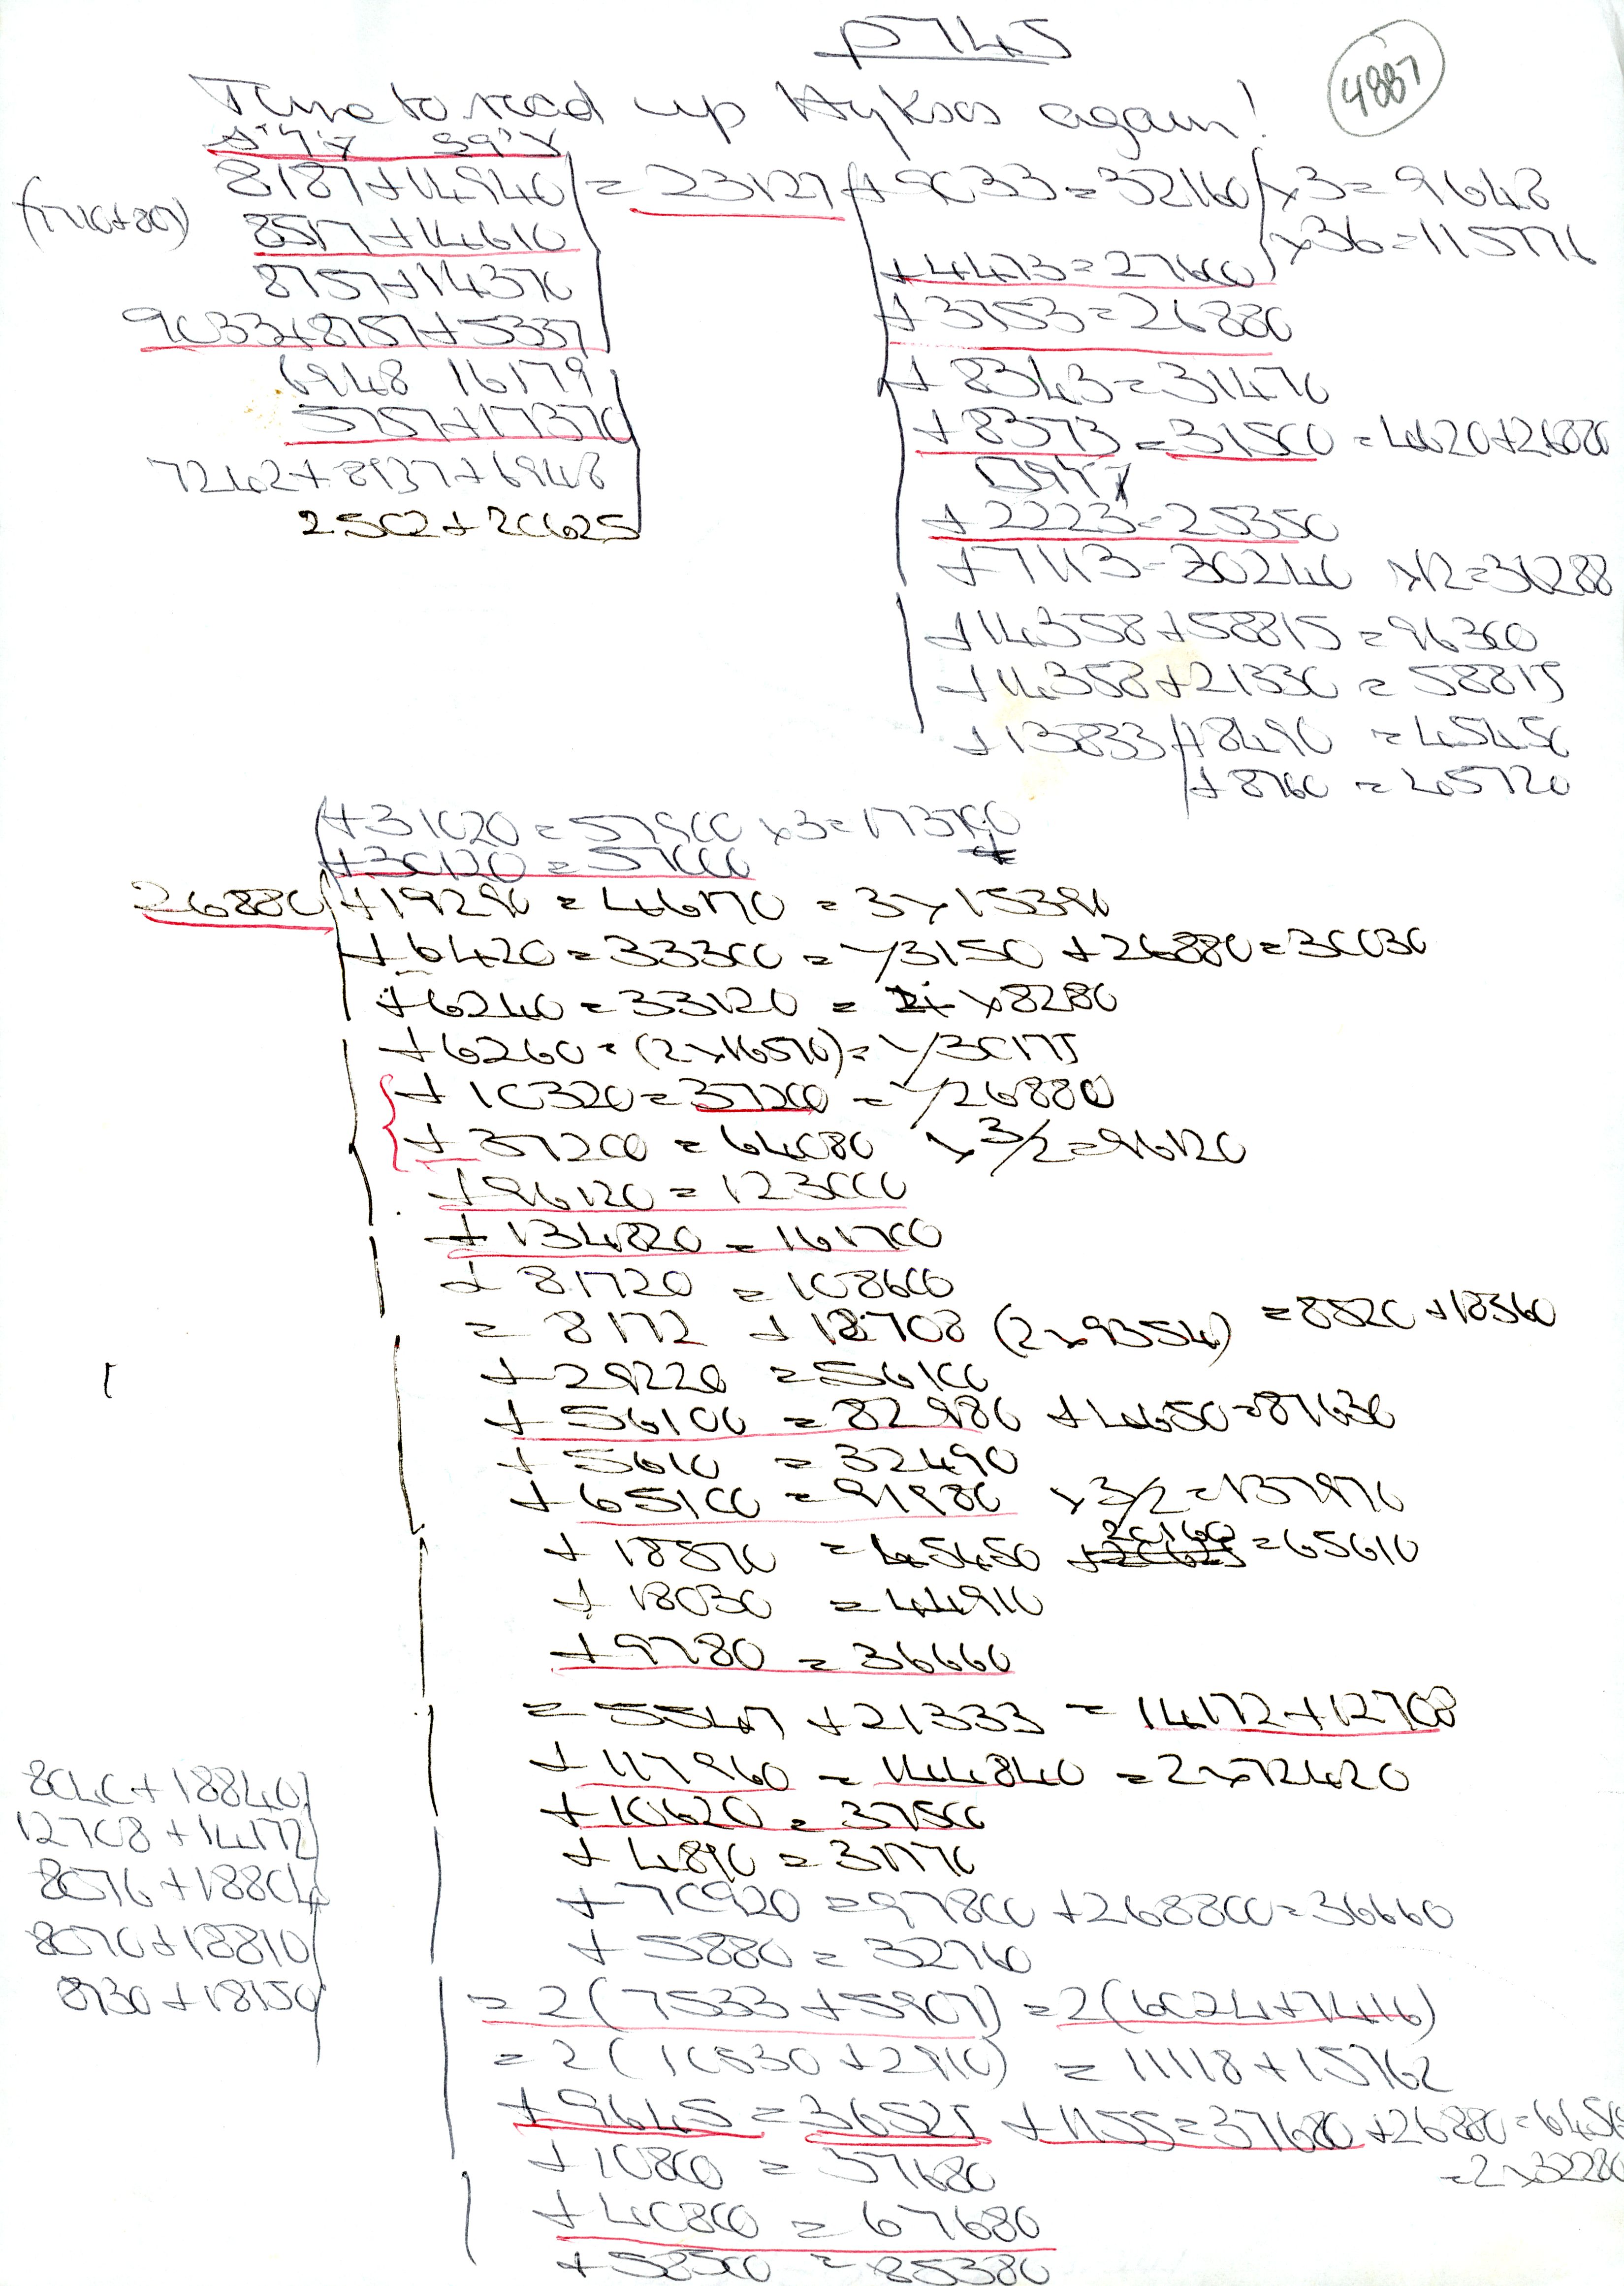 p7145
4887
Time to read up Hyksos again!
8187+14940 = 23127 +9033=32160 ×3=9648
8517+14610 ×36=115776
8757+14370 +4473=27600
9033+8757+5337 +3753=26880
6948 16179 +8343=31470
5757+17370 +8373=31500=4620+26880
7242+8937+6948
2502+20625 +2223=25350
+7113=30240 ×12=36288
+14358+58815=96300
+14358+21330=58815
+13833+8490=45450
+8760=45720
+31020=57900 ×3=173700
+30120=57000
26880 +19290=46170=3×15390
+6420=33300= /3150 +26880=30030
+6240=33120= ×8280
+6260=(2×16570)= /30175
+10320=37200= /26880
+37200=64080 ×3/2=96120
+96120=123000
+134820=161700
+81720=108600
=8172+18708 (2×9354) =8820+18360
+29220=56100
+56100=82980 +4650=87630
+5610=32490
+65100=91980 ×3/2=137970
+18570=45450 +20160=65610
+18030=44910
+9780=36660
=5547+21333=14172+12708
+117960=144840=2×72420
+10620=37500
+4890=31770
+70920=97800 +268800=36660
+5880=32760
=2(7533+5907)=2(6024+7416)
=2(10530+2910)=11118+15762
+9645=36525 +1155=37680 +26880=6456
+10800=37680 =2×32280
+40800=67680
+58500=85380
8040+18840
12708+14172
8076+18804
8070+18810
8730+18150